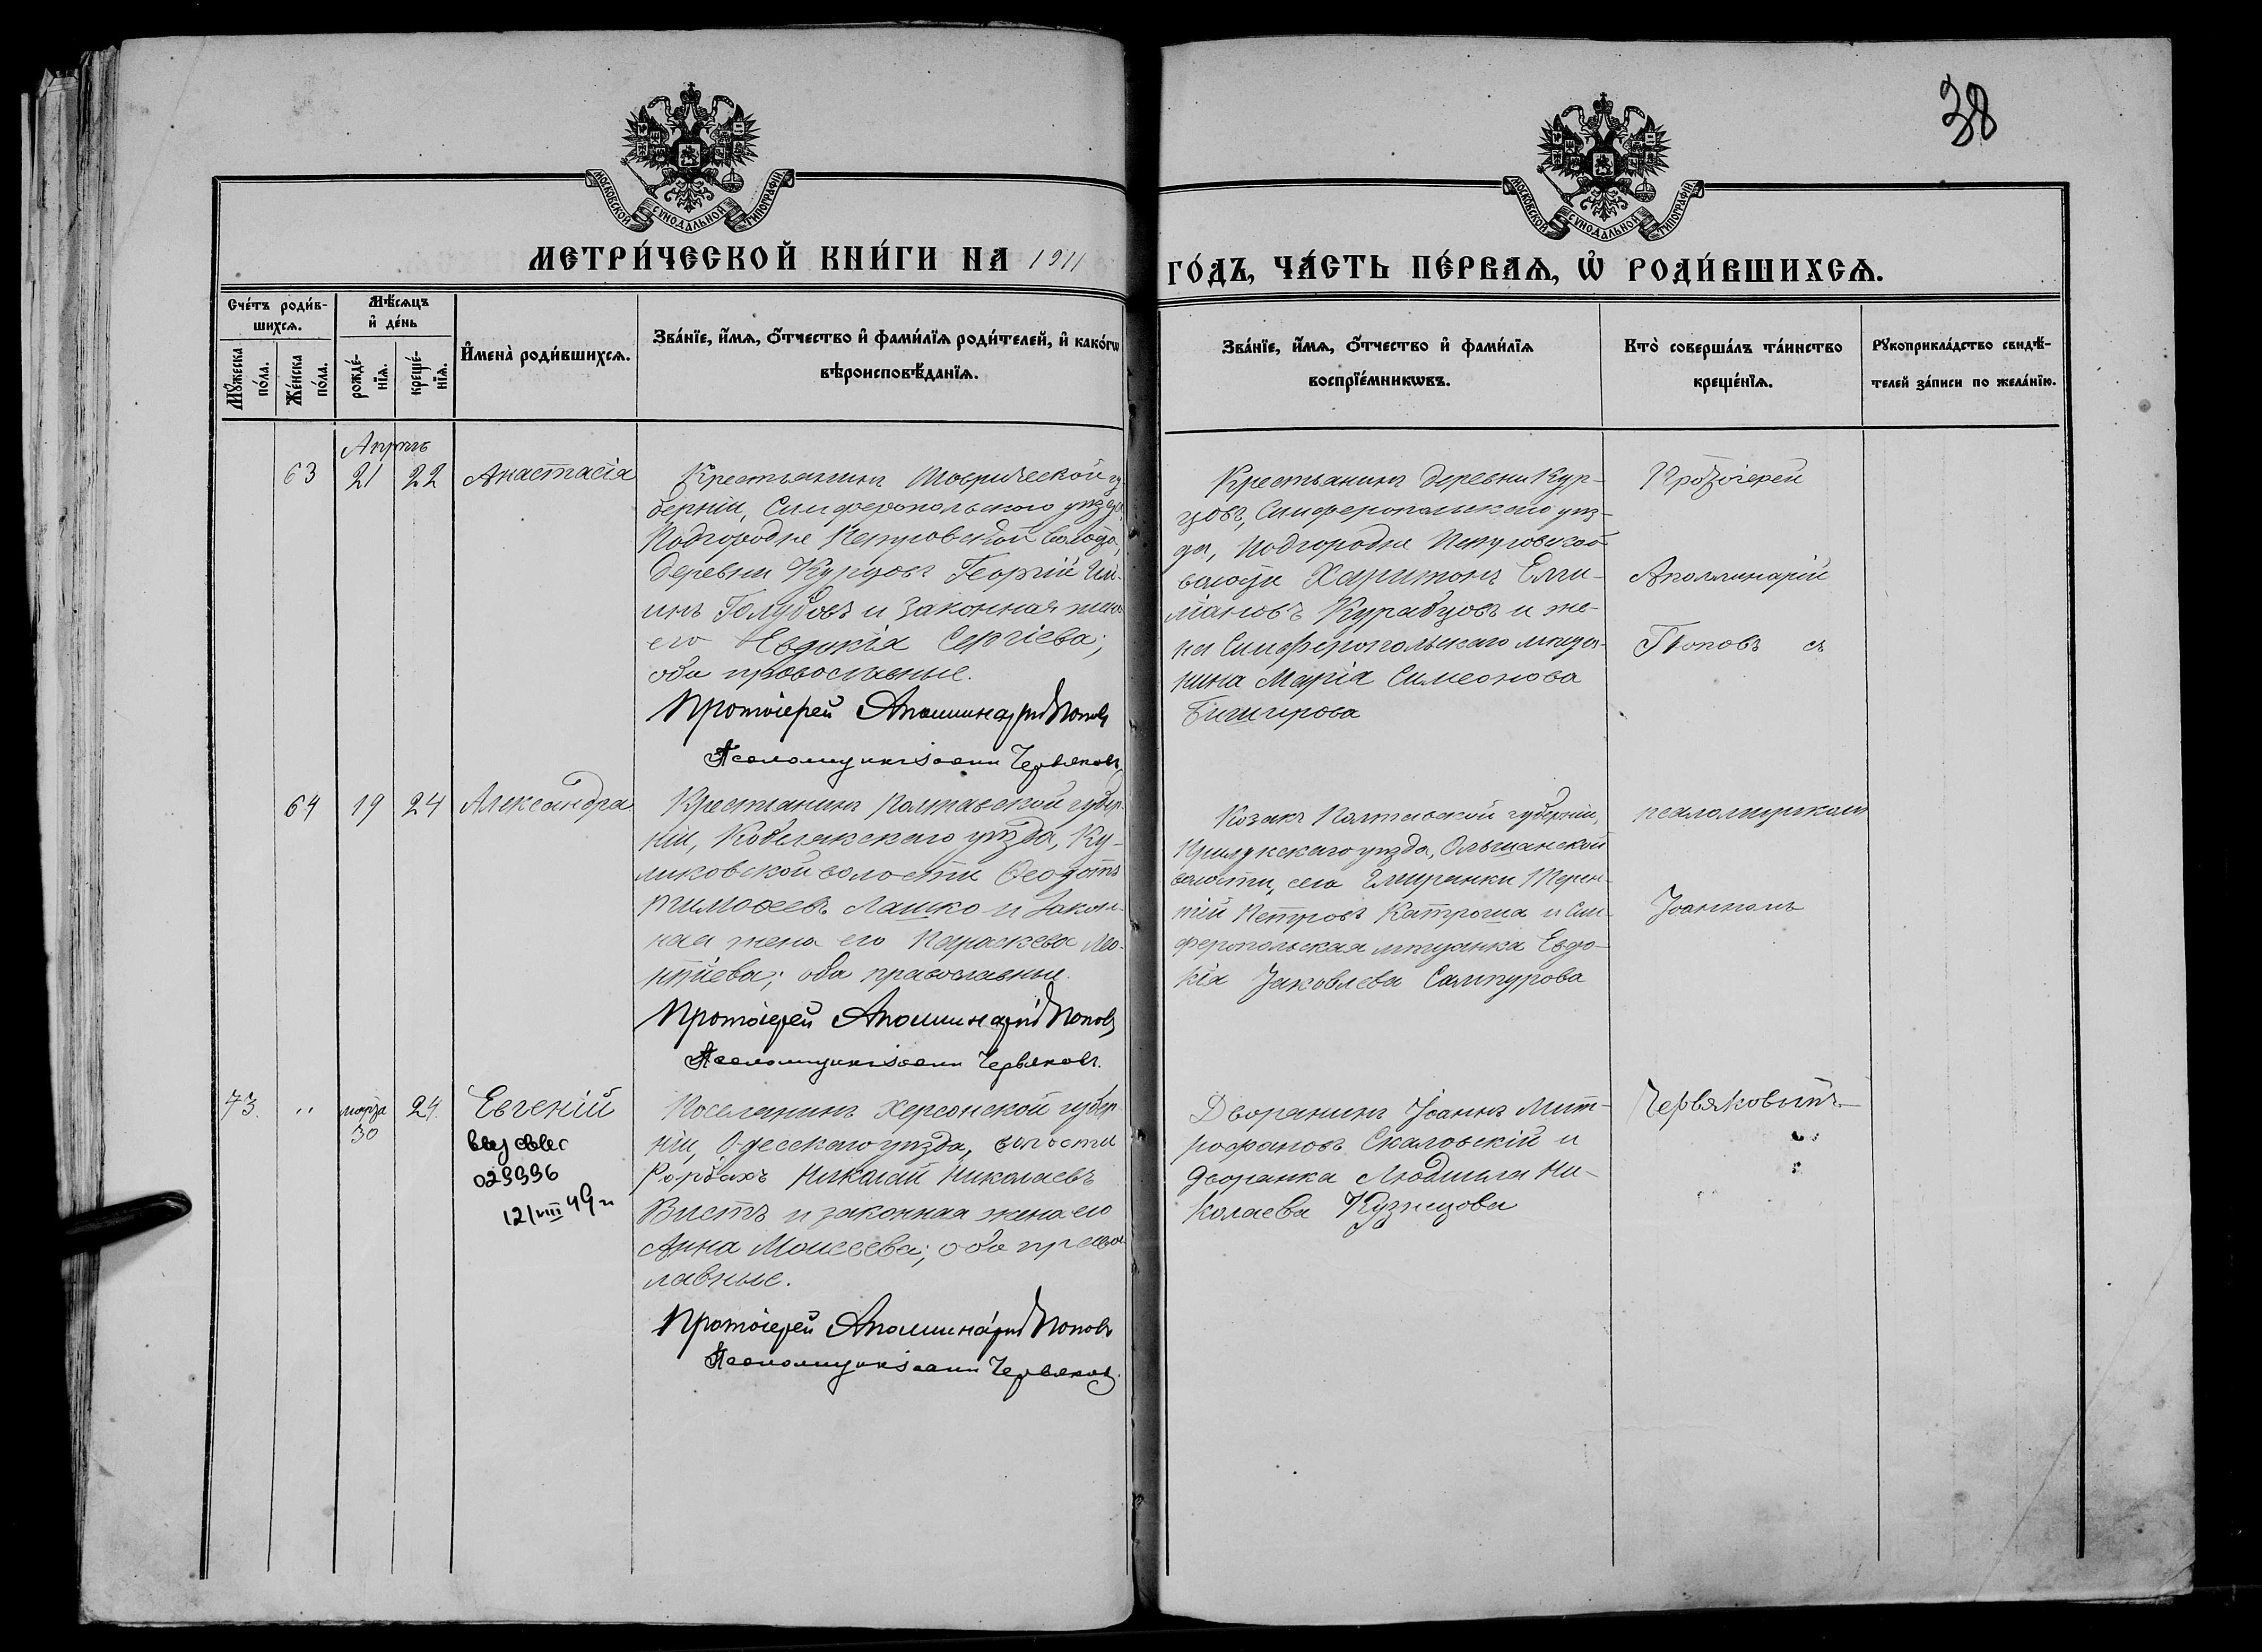 38
МОСКОВСКОЙ СѴНОДАЛЬНОЙ ТИПОГРАФІИ
МОСКОВСКОЙ СѴНОДАЛЬНОЙ ТИПОГРАФІИ
МЕТРИ́ЧЕСКОЙ КНИ́ГИ НА 1911
ГО́ДЪ, ЧА́СТЬ ПЕ́РВАѦ, Ѽ РОДИ́ВШИХСѦ.
Сче́тъ роди́в-
шихсѧ.
Мѣ́сѧцъ
и҆ де́нь
Мꙋ́жеска
по́ла.
Же́нска
по́ла.
рожде́-
нїѧ.
креще́-
нїѧ.
И҆мена̀ роди́вшихсѧ.
Зва́нїе, и҆́мѧ, ѻ҆́тчество и҆ фами́лїѧ роди́телей, и҆ како́гѡ
вѣроисповѣ́данїѧ.
Зва́нїе, и҆́мѧ, ѻ҆́тчество и҆ фами́лїѧ
воспрїе́мникѡвъ.
Кто̀ соверша́лъ та́инство
креще́нїѧ.
Рꙋкоприкла́дство свидѣ́-
телей за́писи по жела́нїю.
Апрѣль
63 21 22 Анастасія
Крестьянинъ Таврической гу-
берніи, Симферопольскаго уѣзда,
Подгородне Петровской волости,
деревни Курцовъ Георгій
Голубовъ и законная жена
его Евдокія Сергіева;
оба православные.
Протоіерей Аполлинарій Поповъ
Псаломщикъ Іоаннъ Червяковъ
Крестьянинъ деревни Кур-
цовъ, Симферопольскаго уѣз-
да, Подгородне Петровской
волости Харитонъ
и же-
на Симферопольскаго мѣща-
нина Марія Симеонова
Протоіерей
Аполлинарій
Поповъ съ
64 19 24 Александра
Крестьянинъ Полтавской губер-
ніи, Кобелякскаго уѣзда, Ку-
ликовской волости Ѳеодотъ
Тимоѳеевъ Лашко и закон-
ная жена его Параскева Лео-
нтіева; оба православные.
Протоіерей Аполлинарій Поповъ
Псаломщикъ Іоаннъ Червяковъ.
Козакъ Полтавской губерніи,
Прилукскаго уѣзда, Ольшанской
волости, села Терен-
тій Петровъ Катроша и Сим-
феропольская мѣщанка Евдо-
кія Іаковлева
псаломщикомъ
Іоанномъ
73. " марта 30 24. Евгеній
029996
12/VIII 49 г
Поселянинъ Херсонской губер-
ніи, Одесскаго уѣзда, волости
Рорбахъ Николай Николаевъ
Вистъ и законная жена его
Анна Моисеева; оба правос-
лавные.
Протоіерей Аполлинарій Поповъ
Псаломщикъ Іоаннъ Червяковъ.
Дворянинъ Іоаннъ Мит-
рофановъ Скаловскій и
дворянка Людмила Ни-
колаева Кузнецова
Червяковымъ